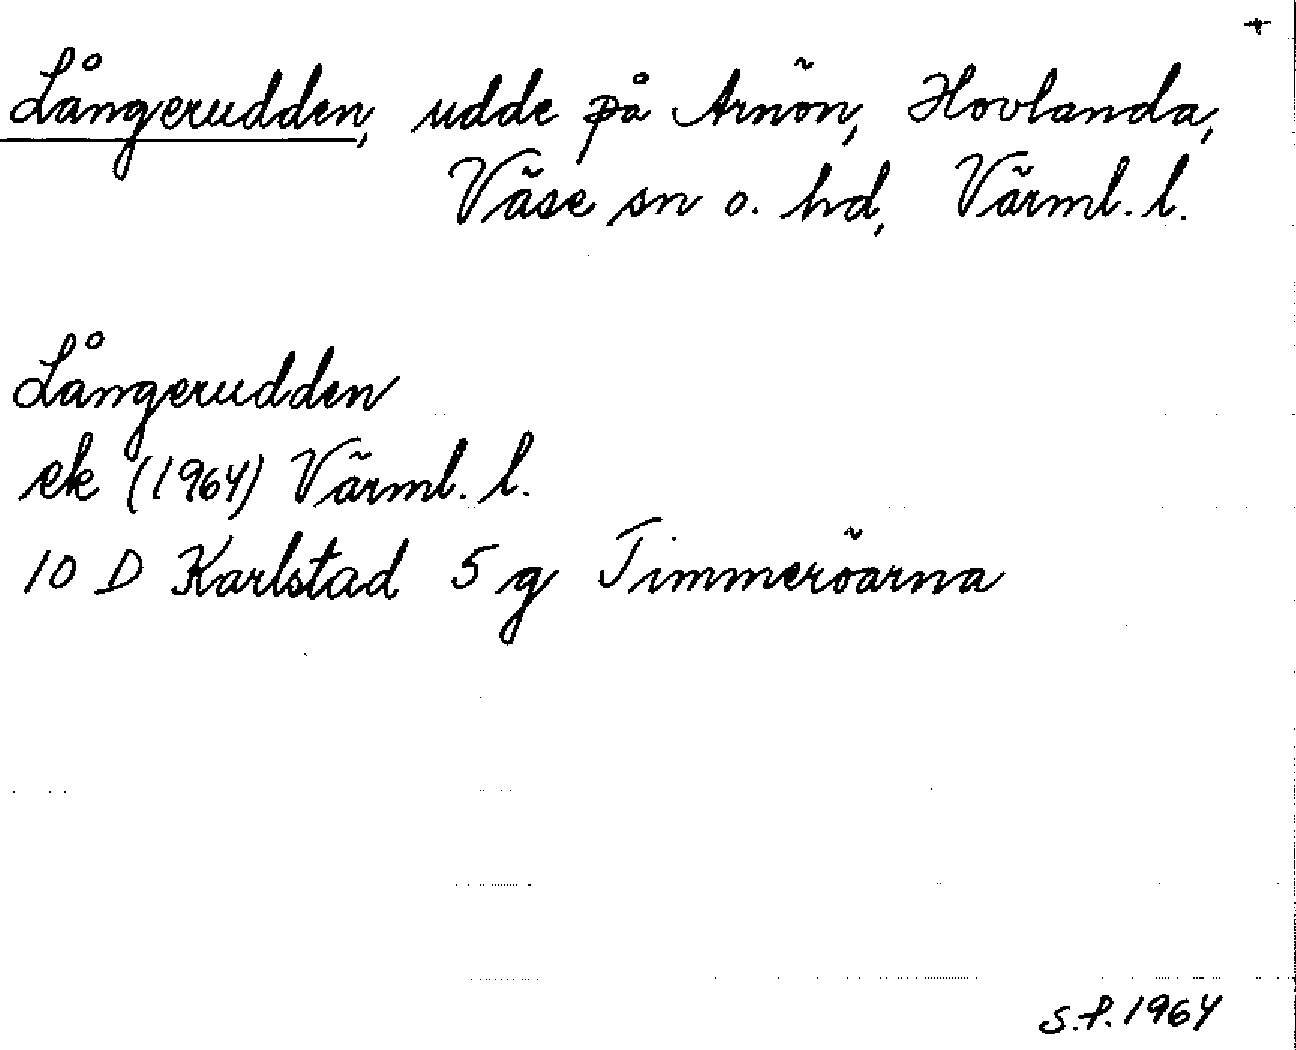 +
Långerudden, udde på Arnön, Hovlanda,
Väse sn o. hd, Värml. l.
Långerudden
ek (1964) Värml. l.
10 D Karlstad 5 g Timmeröarna
S.F. 1964